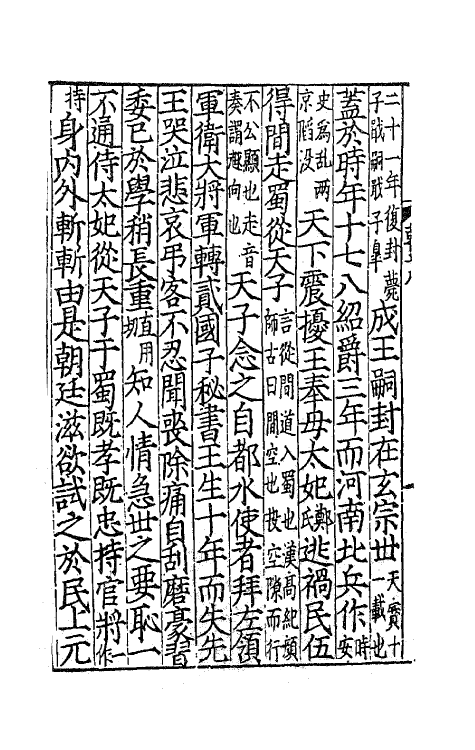 二十一年復封薨子戢嗣戢子皐成王嗣封在玄宗世天寶十一載也
蓋於時年十七八紹爵三年而河南北兵作時安
史為乱兩京陷没天下震擾王奉母太妃鄭氏逃禍民伍
得間走蜀從天子言從間道入蜀也漢高紀顔師古曰間空也投空隙而行
不公顯也走音奏謂趣向也天子念之自都水使者拜左領
軍衛大將軍轉貳國子秘書王生十年而失先
王哭泣悲哀弔客不忍聞喪除痛自刮磨豪習
委己於學稍長重直用切知人情急世之要恥一
不通侍太妃從天子于蜀既孝既忠持官將一作
持身内外斬斬由是朝廷滋欲試之於民上元